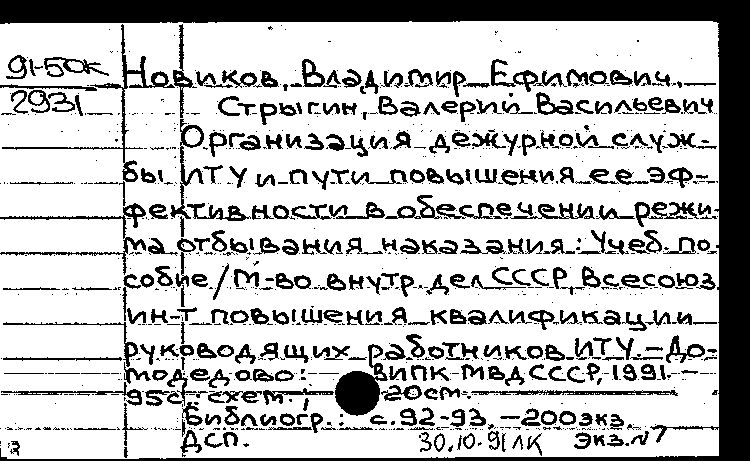 91-5ОК Новиков, Владимир Ефимович.
2931 Стрыгин, Валерий Васильевич
Организация дежурной служ-
бы ИТУ и пути повышения ее эф-
фективности в обеспечении режи-
ма отбывания наказания: Учеб. по-
собие / М-во внутр. дел СССР, Всесоюз.
ин-т повышения квалификации
руководящих работников ИТУ. – До-
модедово: ВИПК МВД СССР, 1991. –
95с.: схем.; 20см.
Библиогр.: с.92-93. – 200экз.
ДСП. 30.10.91 ЛК Экз.№7